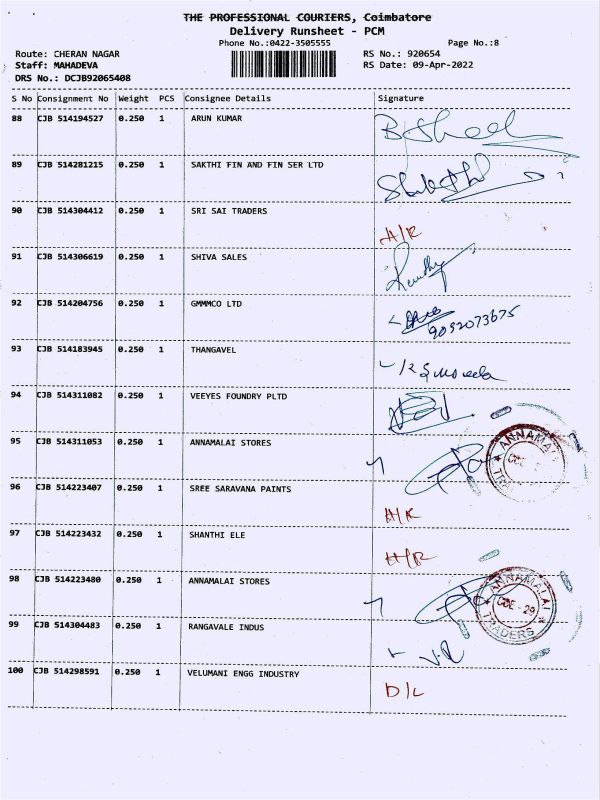 THE PROFESSIONAL COURIERS, Coimbatore
Delivery Runsheet - PCM
Phone No.:0422-3505555
Page No.:8
Route: CHERAN NAGAR
RS No.: 920654
Staff: MAHADEVA
RS Date: 09-Apr-2022
DRS No.: DCJB92065408
S No Consignment No Weight PCS Consignee Details Signature
88 CJB 514194527 0.250 1 ARUN KUMAR
89 CJB 514281215 0.250 1 SAKTHI FIN AND FIN SER LTD
90 CJB 514304412 0.250 1 SRI SAI TRADERS
91 CJB 514306619 0.250 1 SHIVA SALES
92 CJB 514204756 0.250 1 GMMMCO LTD
9092073675
93 CJB 514183945 0.250 1 THANGAVEL
94 CJB 514311082 0.250 1 VEEYES FOUNDRY PLTD
95 CJB 514311053 0.250 1 ANNAMALAI STORES
96 CJB 514223407 0.250 1 SREE SARAVANA PAINTS
97 CJB 514223432 0.250 1 SHANTHI ELE
98 CJB 514223480 0.250 1 ANNAMALAI STORES
ANNAMALAI
COE - 29
TRADERS
99 CJB 514304483 0.250 1 RANGAVALE INDUS
100 CJB 514298591 0.250 1 VELUMANI ENGG INDUSTRY
D/L